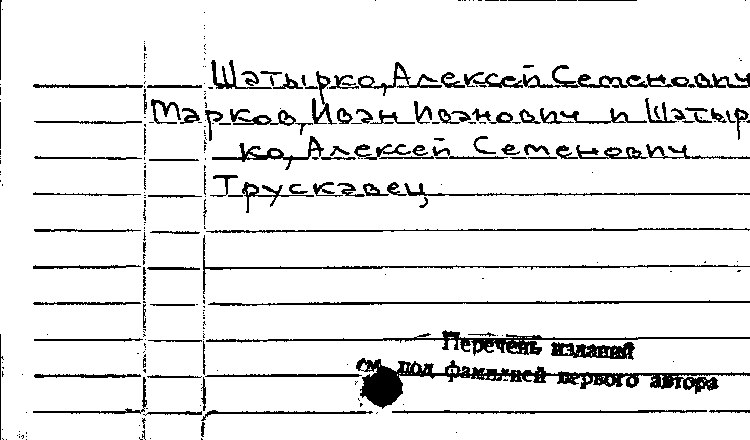 Шатырко, Алексей Семенович
Марков, Иван Иванович и Шатыр
ко, Алексей Семенович
Трускавец
Перечень изданий
см. под фамилией первого автора